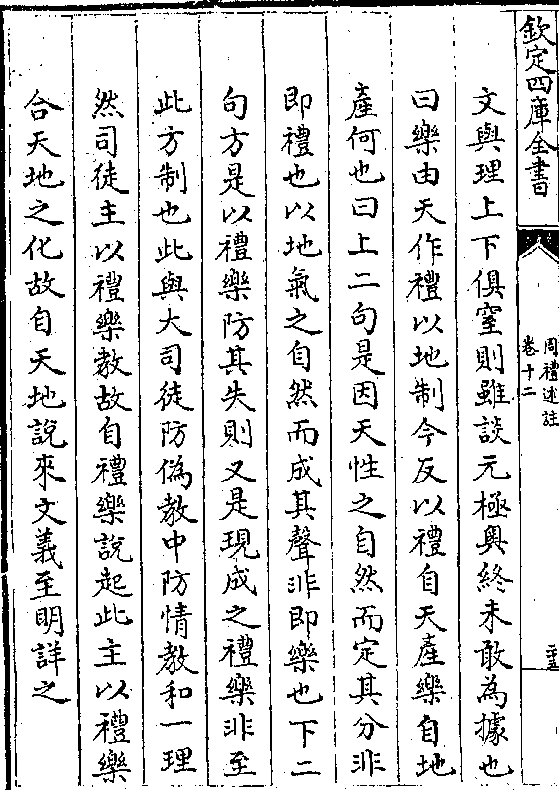 欽定四庫全書
周禮述註
卷十二
二十五
文與理上下俱窒則雖談元極奧終未敢為據也
曰樂由天作禮以地制今反以禮自天產樂自地
產何也曰上二句是因天性之自然而定其分非
即禮也以地氣之自然而成其聲非即樂也下二
句方是以禮樂防其失則又是現成之禮樂非至
此方制也此與大司徒防偽教中防情教和一理
然司徒主以禮樂教故自禮樂說起此主以禮樂
合天地之化故自天地說來文義至明詳之